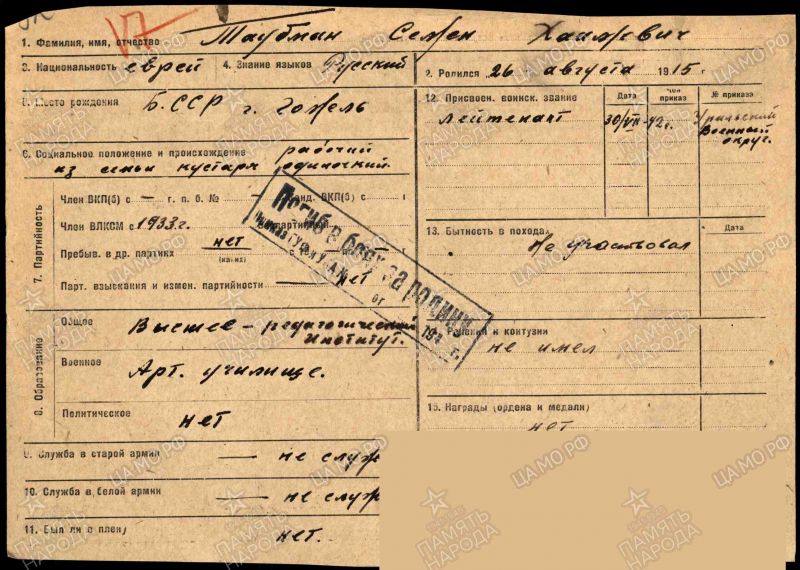 17
1. Фамилия, имя, отчество Таубман Семен Хаимович
3. Национальность еврей 4. Знание языков Русский
2. Родился „26 августа 1915 г
5. Место рождения Б.ССР г. Гомель
6. Социальное положение и происхождение рабочий
из семьи кустаря одиночки
7. Партийность
Член ВКП(б) с — г. п. б. № Канд. ВКП(б) с г
Член ВЛКСМ с 1933 г.
Пребыв. в др. партиях нет
(каких)
Парт. взыскания и измен. партийности — нет
Погиб в боях за родину
от 194 г.
8. Образование
Общее Высшее – педагогический
институт.
Военное Арт. училище.
Политическое нет
9. Служба в старой армии — не служ
10. Служба в белой армии — не служ
11. Был ли в плену нет.
12. Присвоен. воинск. звание Дата Чей приказ № приказа
лейтенант 30/VII-42г. Уральский
Военный
округ.
13. Бытность в походах Дата
Не участвовал
14. Ранения и контузии
не имел
15. Награды (ордена и медали)
нет
ЦАМО.РФ
ПАМЯТЬ
НАРОДА